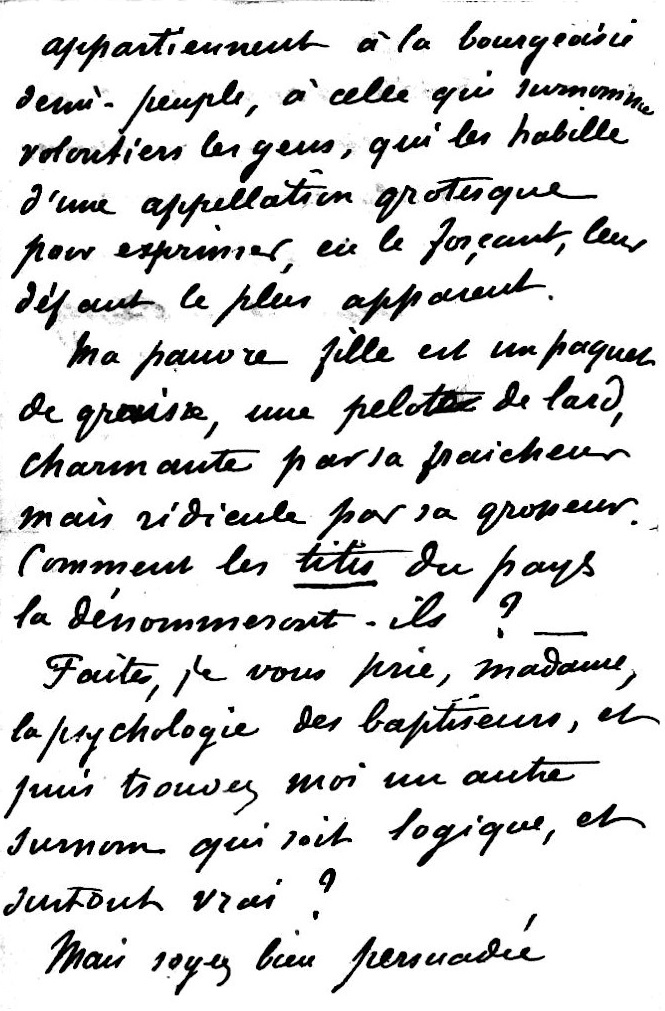 appartiennent à la bourgeoisie
demi-peuple, à celle qui surnomme
volontiers les gens, qui les habille
d'une appellation grotesque
pour exprimer, en le forçant, leur
défaut le plus apparent.
Ma pauvre fille est un paquet
de graisse, une pelote de lard,
charmante par sa fraicheur
mais ridicule par sa grosseur.
Comment les titis du pays
la dénommeront-ils ? _
Faites, je vous prie, madame,
la psychologie des baptiseurs, et
puis trouvez moi un autre
surnom qui soit logique, et
surtout vrai ?
Mais soyez bien persuadée